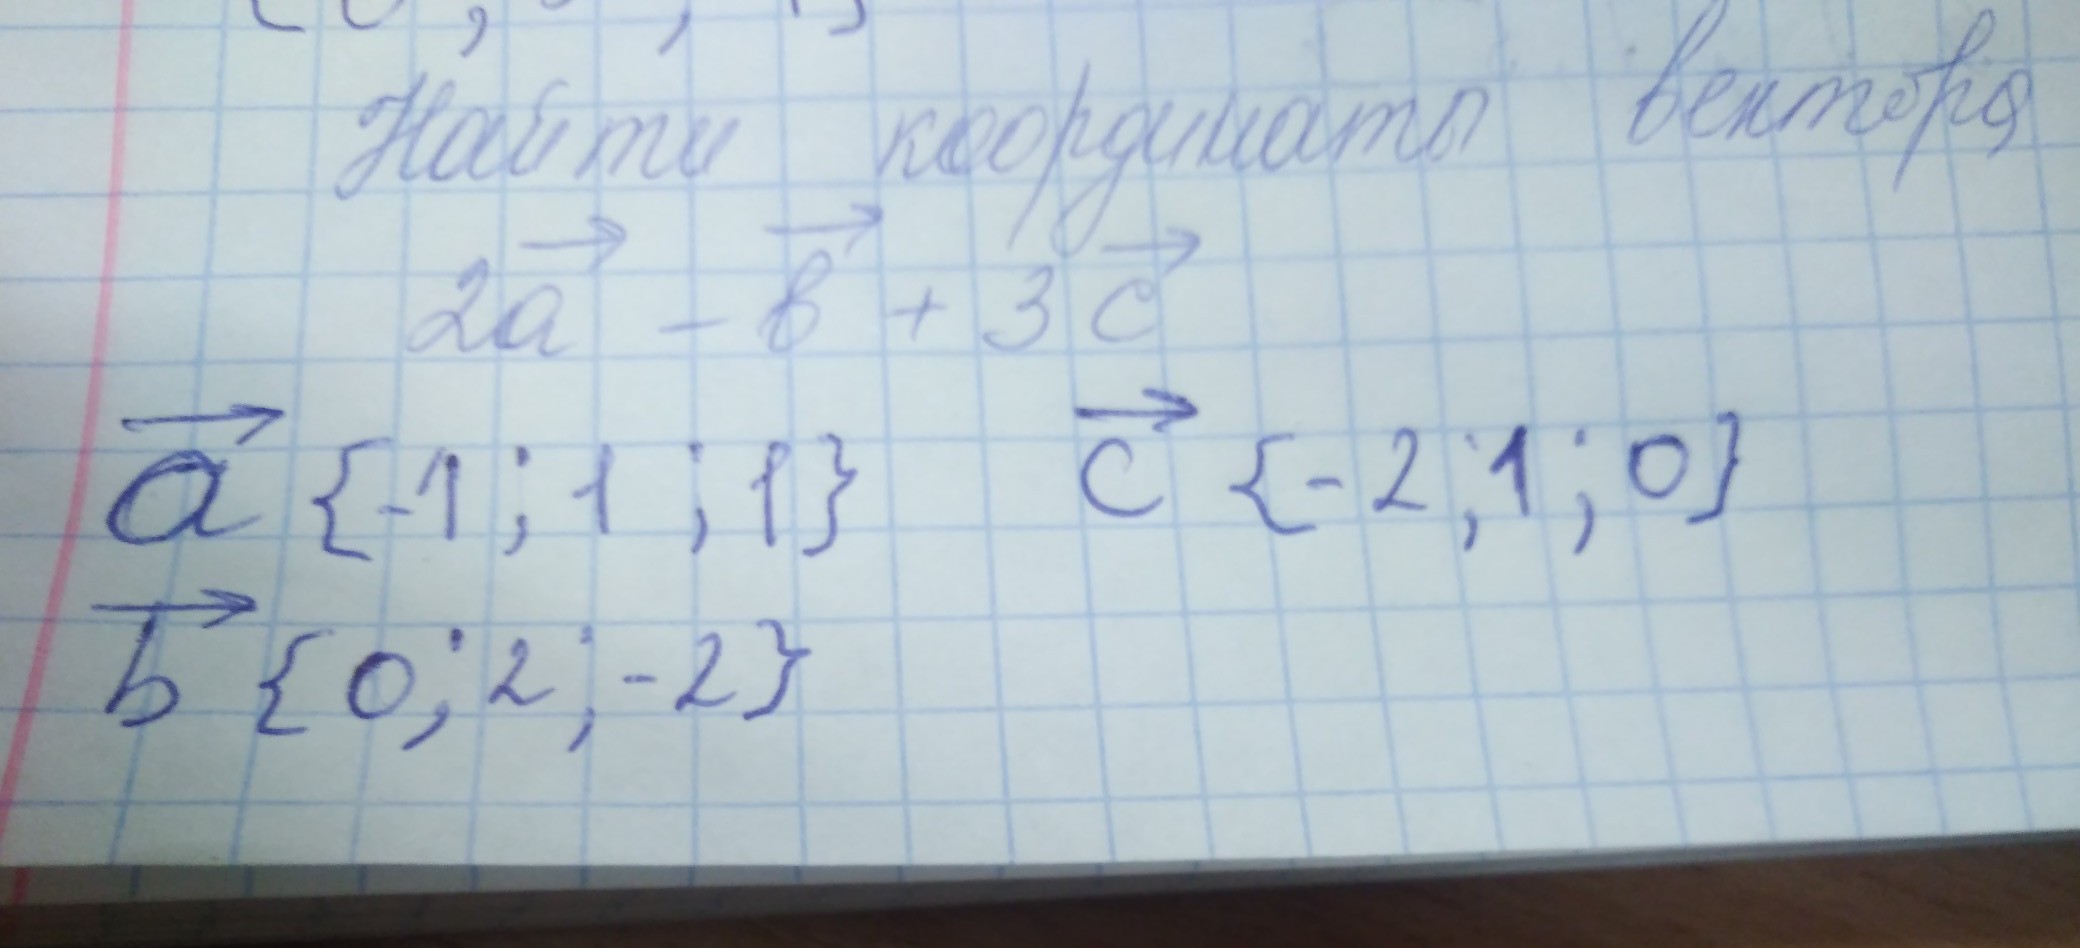 Найти координаты вектора
2a⃗ - b⃗ + 3c⃗
a⃗ {-1; 1; 1} c⃗ {-2; 1; 0}
b⃗ {0; 2; -2}